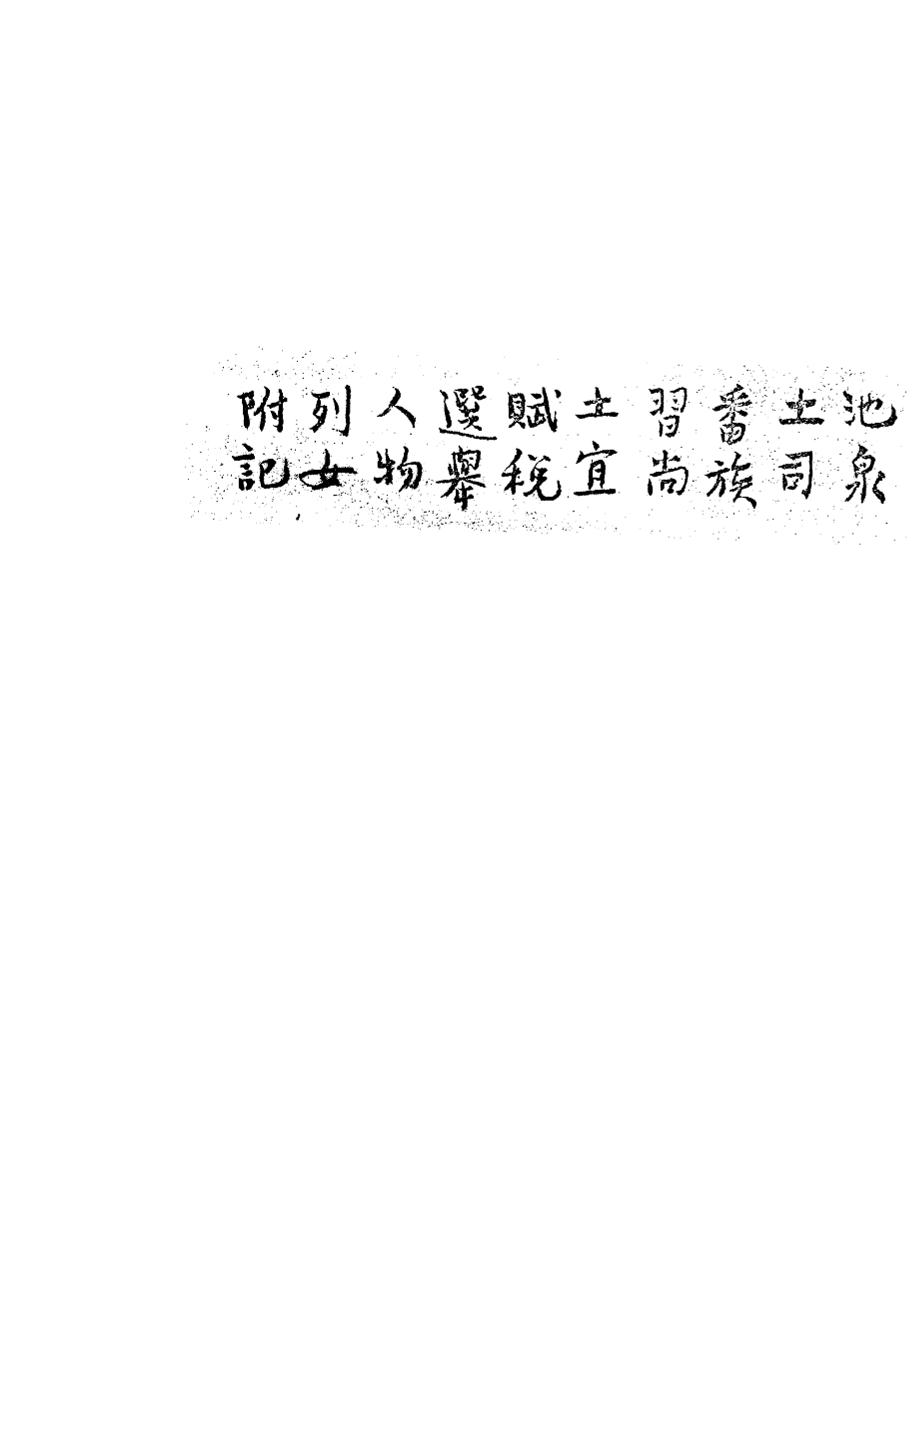 池泉
土司
番族
習尚
土宜
賦税
選舉
人物
列女
附記